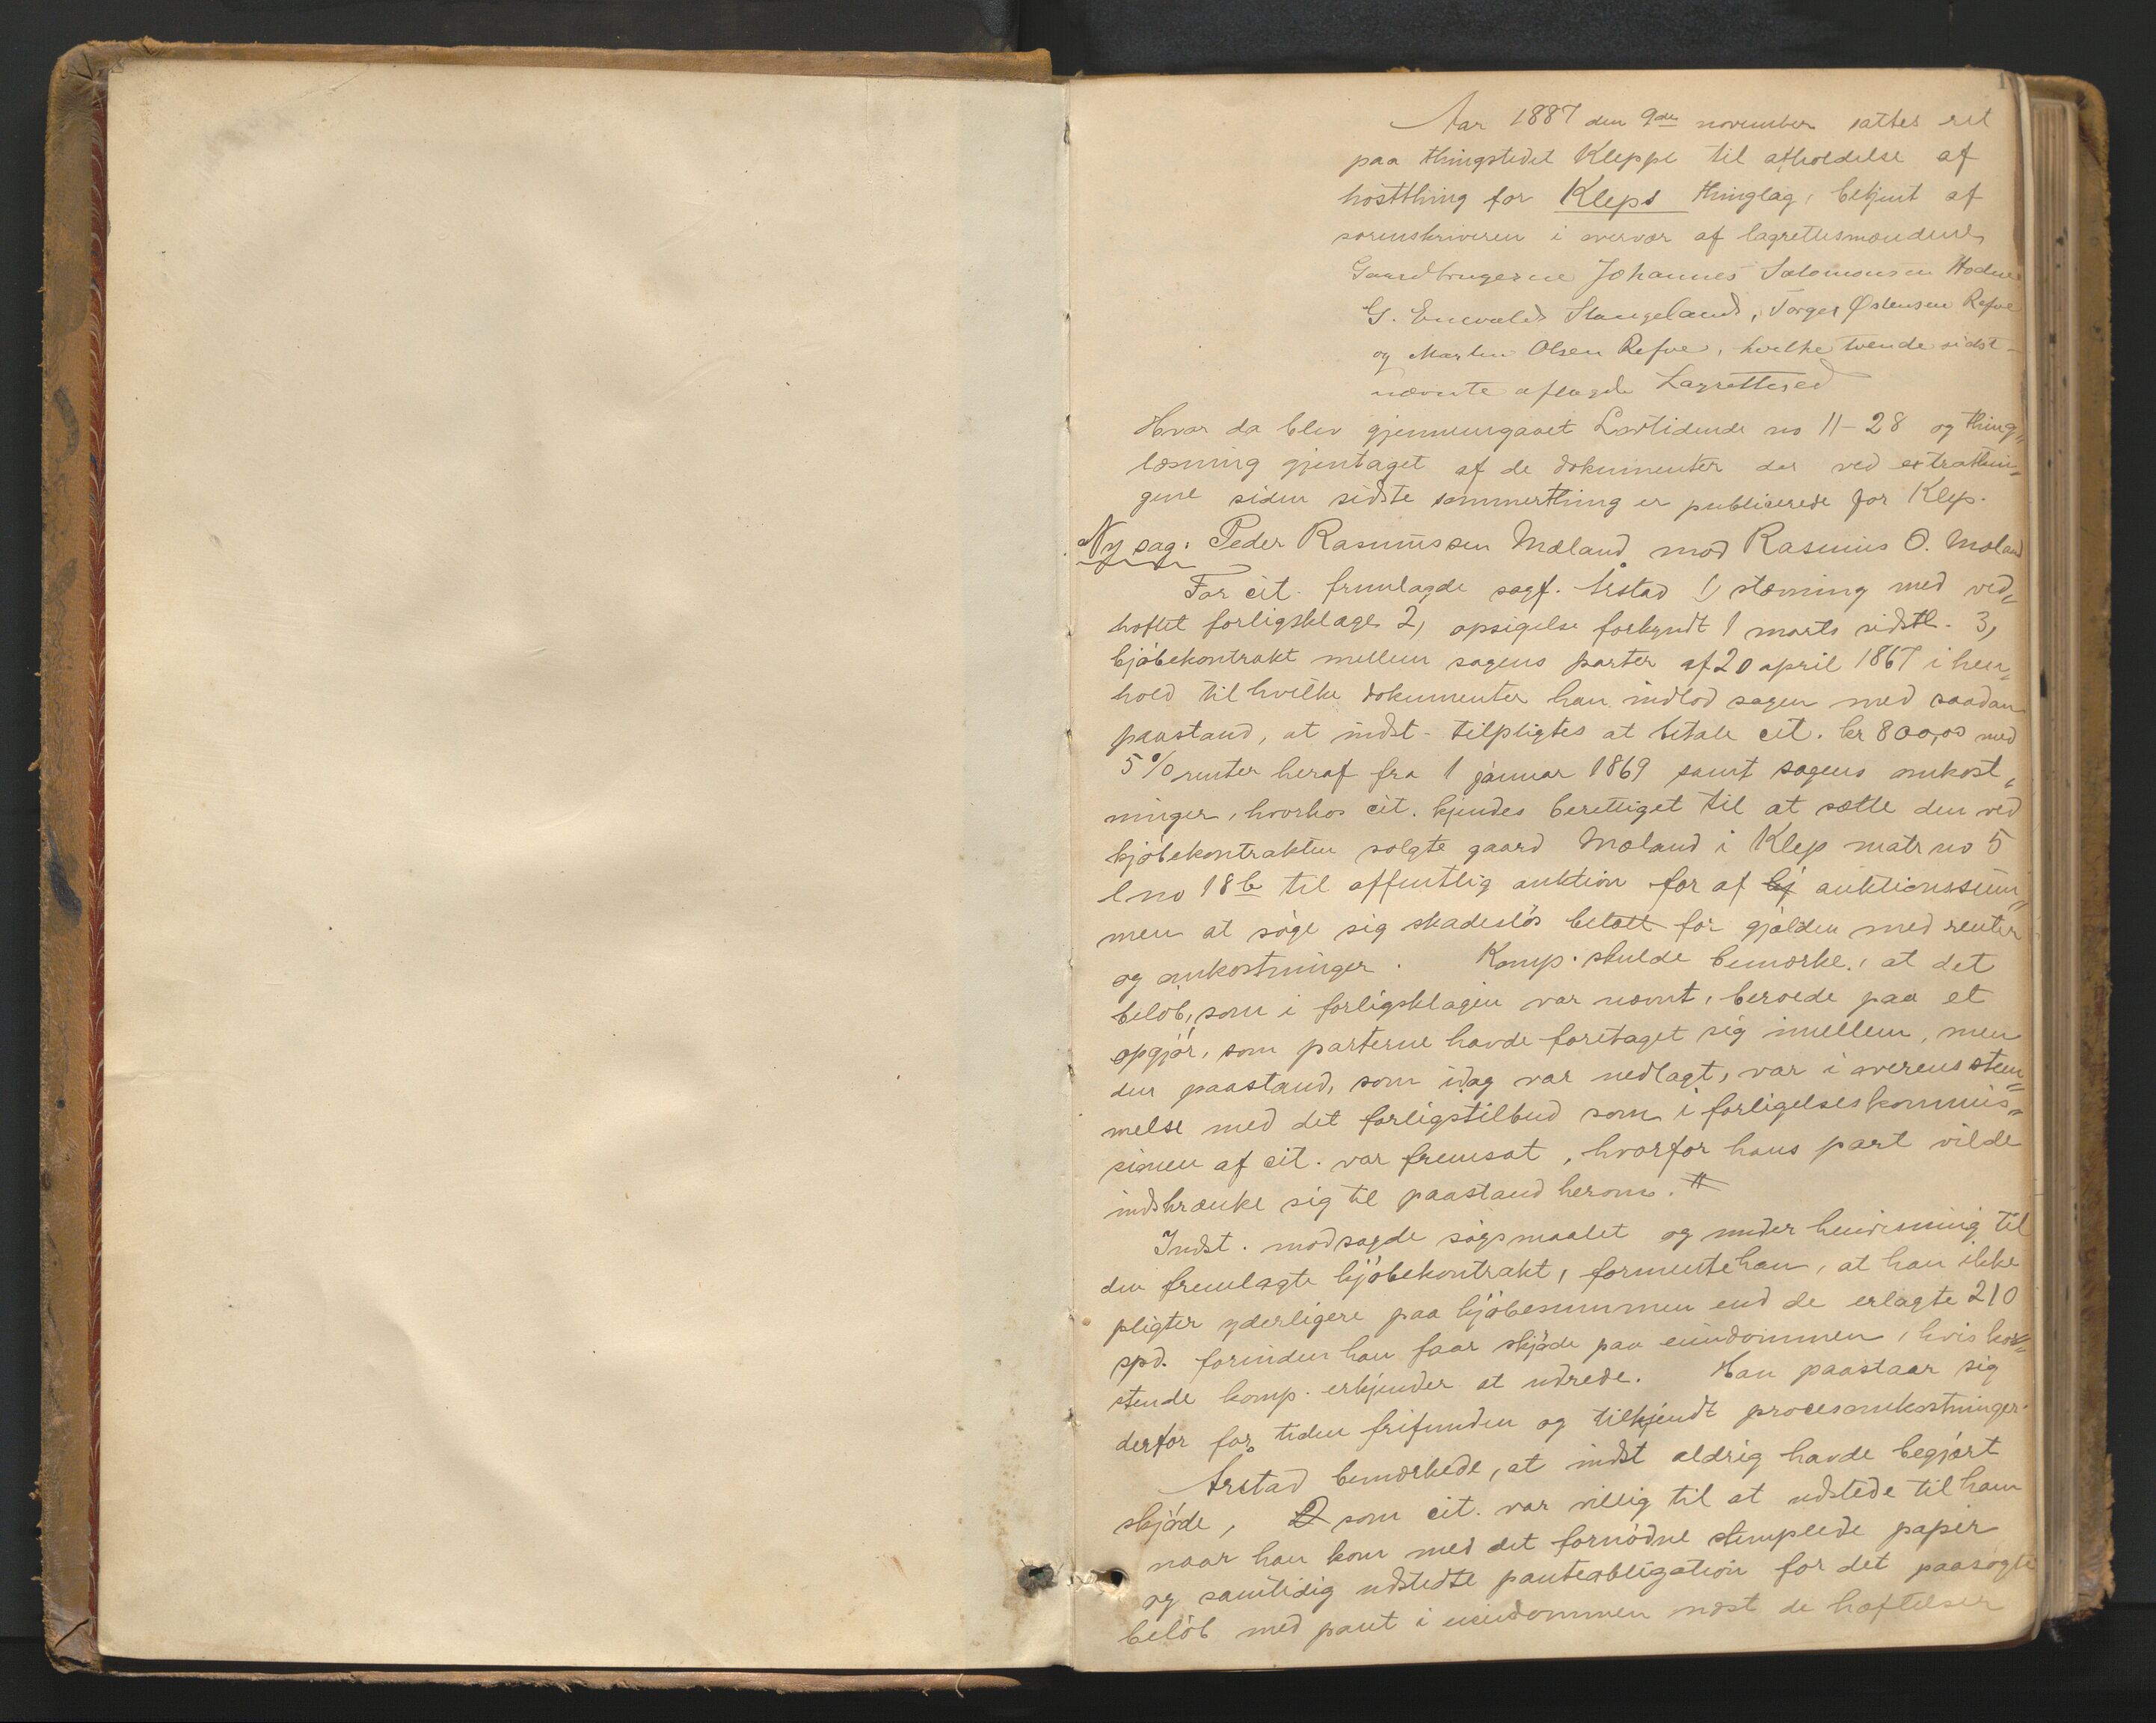 1
Aar 1887 den 9de november sattes ret
paa thingstedet Kleppe til afholdelse af
hóstthing for Kleps thinglag, betjent af
sorenskriveren i overvær af lagrettesmændene,
Gaardbrugerne Johannes Salomonsen Hodne
G. Enevald Stangeland, Torger Østensen Refve
og Martin Olsen Refve, hvilke tvende sidst-
nævnte aflagde Lagrettesed
Hvor da blev gjennemgaaet Lovtidende no 11-28 og thing„
læsning gjentaget af de dokumenter der ved extrathin„
gene siden sidste sommerthing er publicerede for Klep.
Ny sag: Peder Rasmussen Mæland mod Rasmus O. Mæland
For cit. fremlagde sagf. Årstad 1, stævning med ved„
hæftet forligsklage 2, opsigelse forkyndt 1 marts sidstl. 3,
kjöbekontrakt mellem sagens parter af 20 april 1867 i hen„
hold til hvilke dokumenter han indlod sagen med saadan
paastand, at indst- tilpligtes at betale cit. kr 800,00 med
5 % renter heraf fra 1 januar 1869 samt sagens omkost„
ninger, hvorhos cit. kjendes berettiget til at sætte den ved
kjöbekontrakten solgte gaard Mæland i Klep matr no 5
l no 18 b til offentlig auktion for af kj auktionssum„
men at söge sig skadeslös betalt for gjælden med renter
og omkostninger. Komp. skulde bemærke, at det
belöb, som i forligsklagen var nævnt, beroede paa et
opgjör, som parterne havde foretaget sig imellem, men
den paastand, som idag var nedlagt, var i overensstem„
melse med det forligstilbud som i forligelseskommis„
sionen af cit. var fremsat, hvorfor hans part vilde
indskrænke sig til paastand herom. #
Indst. modsagde sögsmaalet og under henvisning til
den fremlagte kjöbekontrakt, formente han, at han ikke
pligter yderligere paa kjöbesummen end de erlagte 210
spd. forinden han faar skjöde paa eiendommen, hvis kos„
tende komp. erkjender at udrede. Han paastaar sig
derfor for tiden frifunden og tilkjendt procesomkostninger.
Årstad bemærkede, at indst aldrig havde begjært
skjöde, som cit. var villig til at udstede til ham
naar han kom med det fornödne stemplede papir
og samtidig udstedte panteobligation for det paasögte
belöb med pant i eiendommen næst de hæftelser